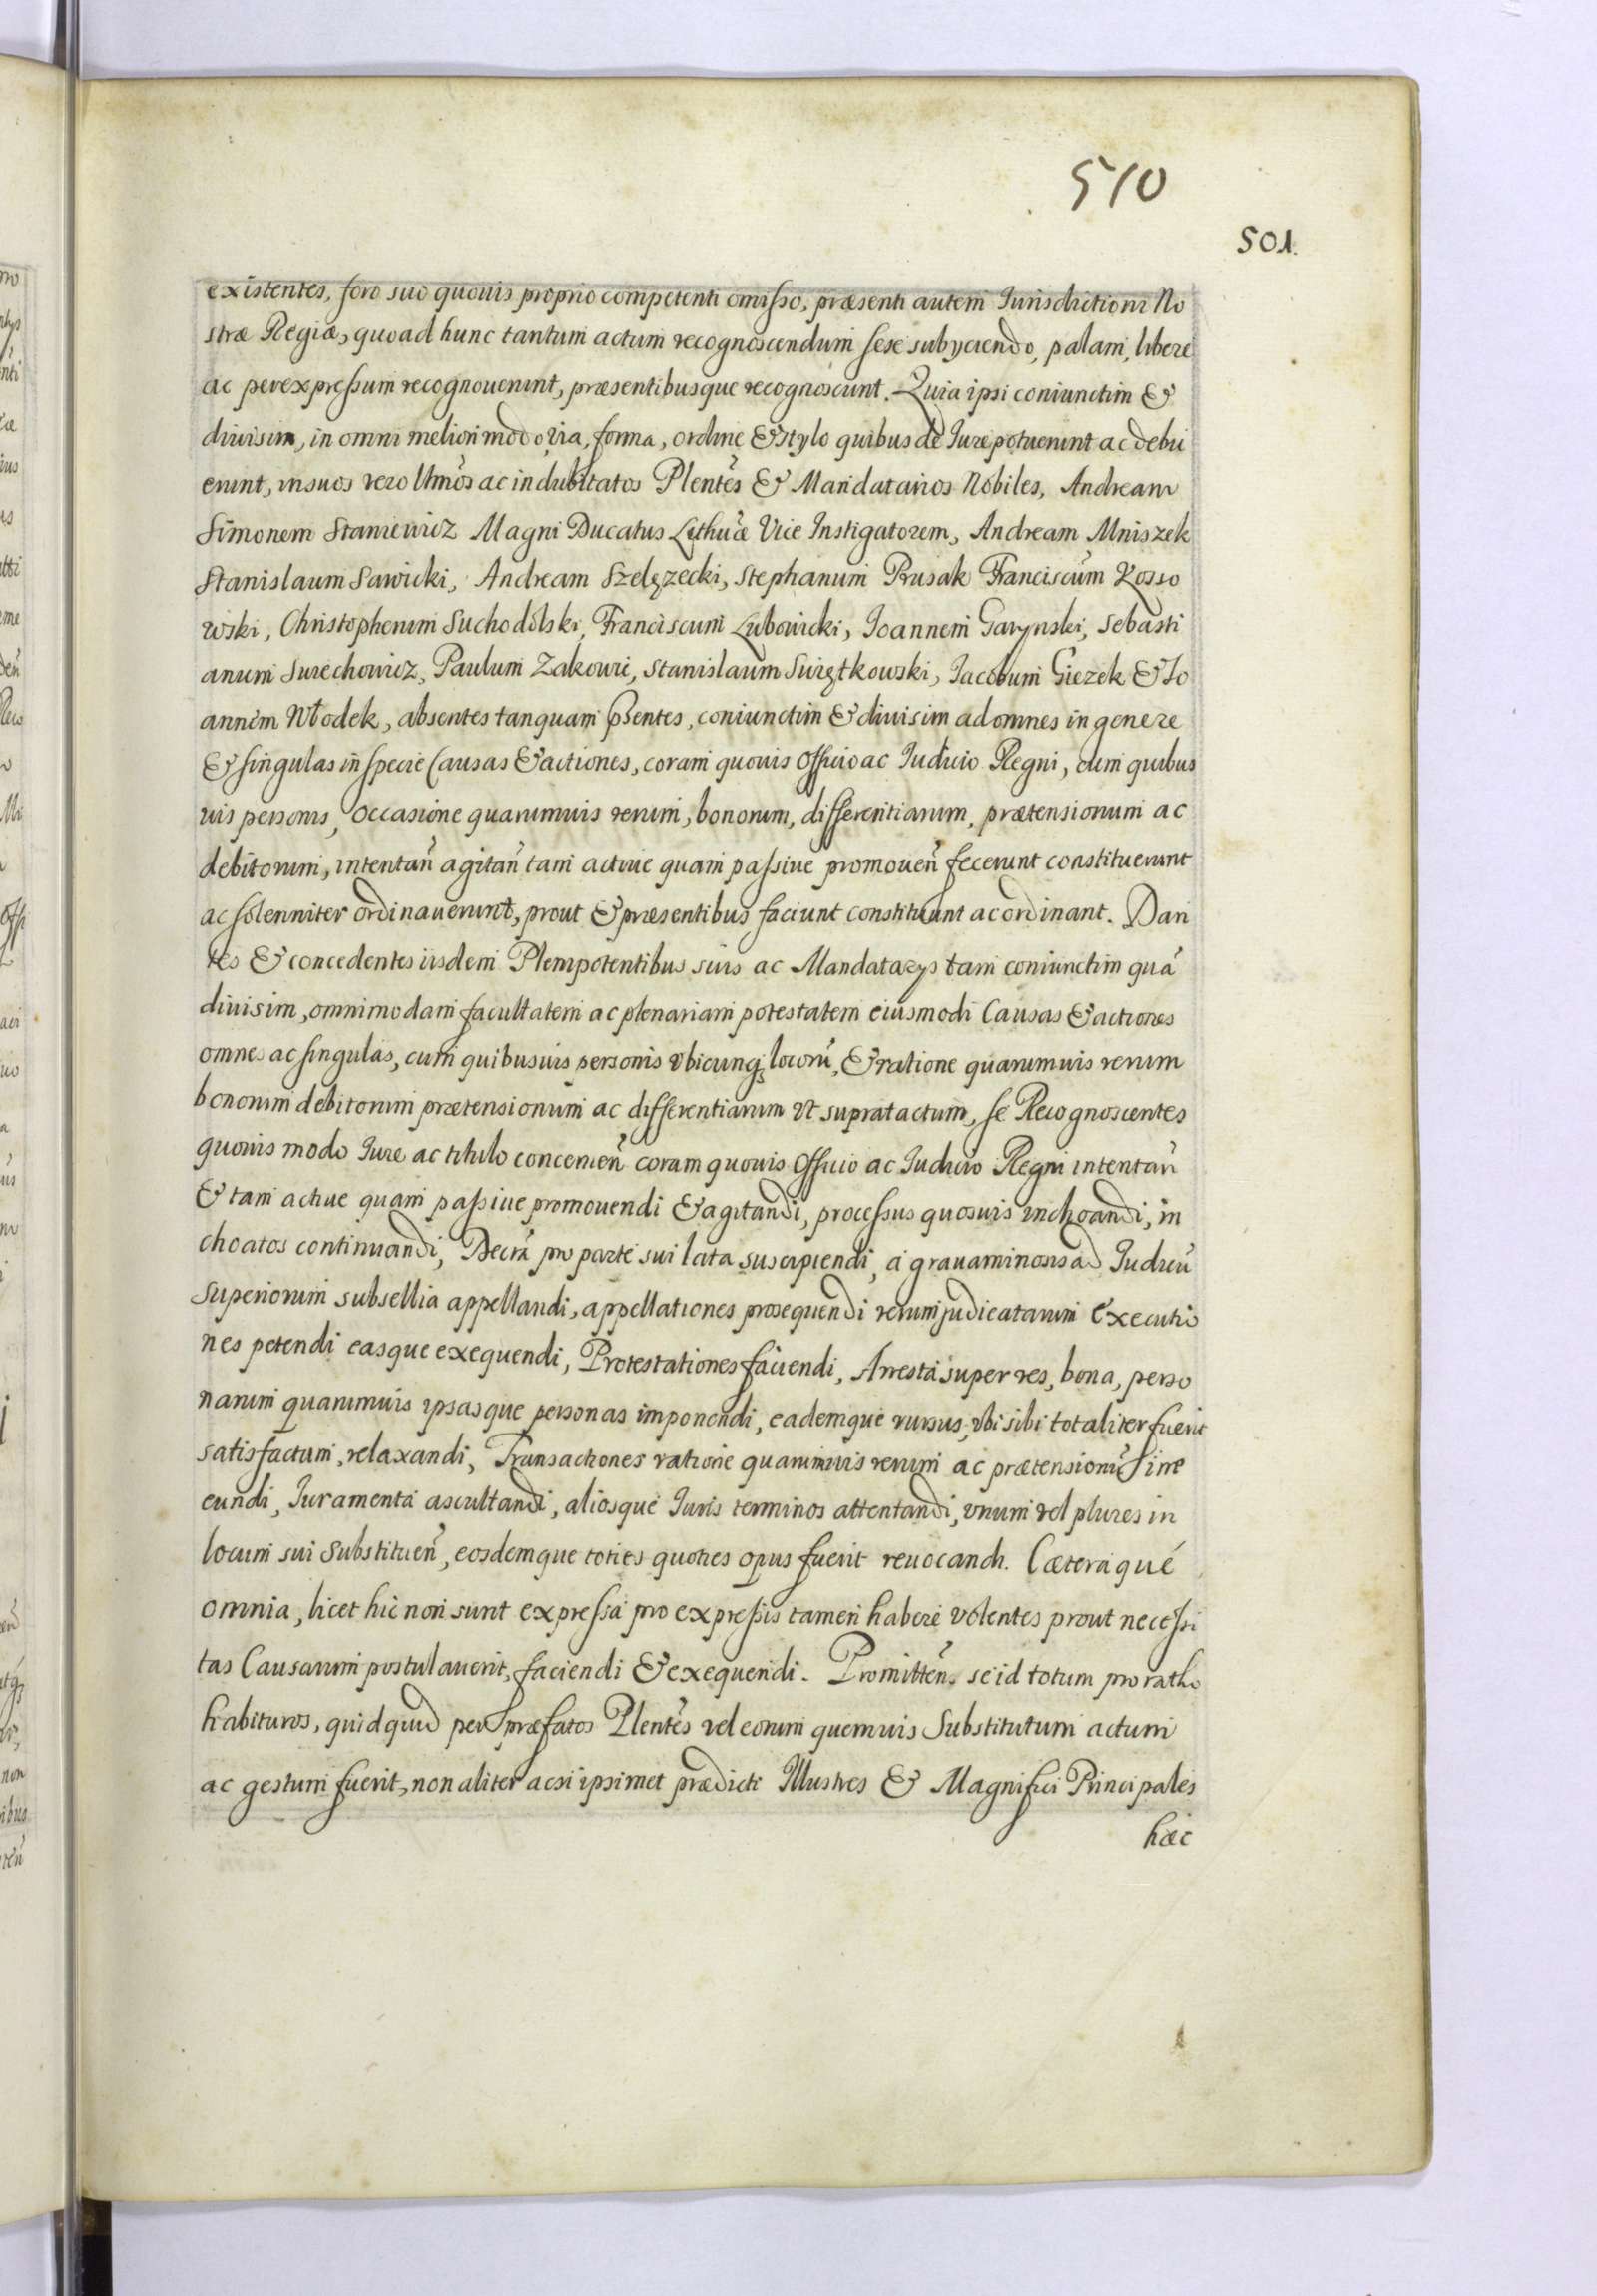 510
501.
existentes, foro suo quouis proprio competenti omisso, præsenti autem Iurisdictioni No
stræ Regiæ, quoad hunc tantum actum recognoscendum sese subyciendo, palam, libere
ac per expressum recognouerunt, præsentibusque recognoscunt. Quia ipsi coniunctim &
diuisim, in omni meliori modo, via, forma, ordine & stylo quibus de Iure potuerunt ac debu
erunt, in suos vero ltmos ac indubitatos Plentes & Mandatarios Nobiles, Andream
Simonem Staniewicz Magni Ducatus Lithuæ Vice Instigatorem, Andream Mniszek
Stanislaum Sawicki, Andream Szelęzecki, Stephanum Prusak Franciscum Kosso
wski, Christophorum Suchodolski, Franciscum Lubowicki, Ioannem Garynski, Sebasti
anum Surechowicz, Paulum Zakowic, Stanislaum Swiętkowski, Iacobum Giezek & Io
annem Włodek, absentes tanquam pñtes, coniunctim & diuisim ad omnes in genere
& singulas in specie Causas & actiones, coram quouis Officio ac Iudicio Regni, cum quibus
uis personis, occasione quarumuis rerum, bonorum, differentiarum, prætensionum ac
debitorum, intentañ agitañ tam actiue quam passiue promoueñ fecerunt constituerunt
ac solenniter ordinauerunt, prout & præsentibus faciunt constituunt ac ordinant. Dan
tes & concedentes iisdem Plenipotentibus suis ac Mandatarys tam coniunctim quã
diuisim, omnimodam facultatem ac plenariam potestatem eiusmodi Causas & actiones
omnes ac singulas, cum quibusuis personis vbicunqꝫ locorũ, & ratione quarumuis rerum
bonorum debitorum prætensionum ac differentiarum vt supra tactum, se Recognoscentes
quouis modo Iure ac titulo concerneñ coram quouis Officio ac Iudicio Regni intentañ
& tam actiue quam passiue promouendi & agitandi, processus quosuis inchoandi, in
choatos continuandi, Decrã pro parte sui lata suscipiendi, a grauaminosis ad Iudicũ
Superiorum subsellia appellandi, appellationes prosequendi rerum judicatarum Executio
nes petendi easque exequendi, Protestationes faciendi, Arresta super res, bona, perso
narum quarumuis ipsasque personas imponendi, eademque rursus, vbi sibi totaliter fuerit
satisfactum, relaxandi, Transactiones ratione quarumuis rerum ac prætensionũ inre
eundi, Iuramenta ascultandi, aliosque Iuris terminos attentandi, vnum vel plures in
locum sui Substitueñ, eosdemque toties quoties opus fuerit reuocandi. Cæteraque
omnia, licet hic non sunt expressa pro expressis tamen habere volentes prout necessi
tas Causarum postulauerit, faciendi & exequendi. Promitteñ. se id totum pro ratho
habituros, quidquid per præfatos Plentes vel eorum quemuis Substitutum actum
ac gestum fuerit, non aliter acsi ipsimet prædicti Illustres & Magnifici Principales
hæc